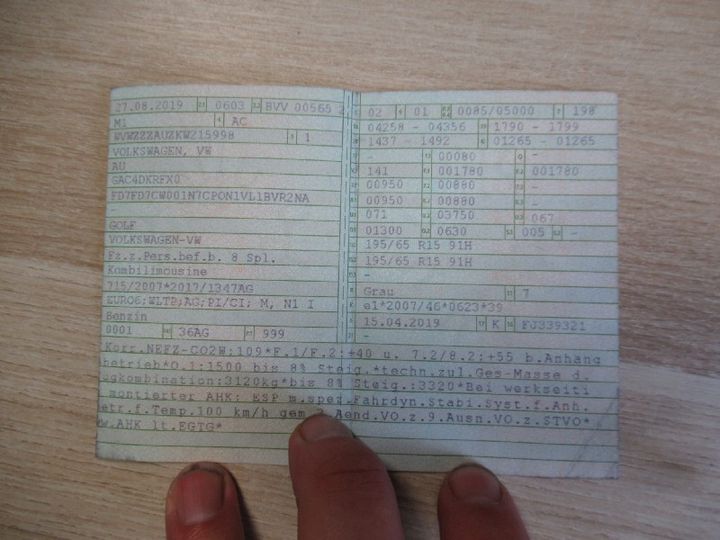 27.08.2019 0603 BVV 00565 2
M1 AC
WVWZZZAUZKW215998 1
VOLKSWAGEN, VW
AU
GAC4DKRFX0
FD7FD7CW001N7CPON1VL1BVR2NA
GOLF
VOLKSWAGEN-VW
Fz.z.Pers.bef.b. 8 Spl.
Kombilimousine
715/2007*2017/1347AG
EURO6;WLTP;AG;PI/CI; M, N1 I
Benzin
0001 36AG 999
02 01 0085/05000 198
04258 - 04356 1790 - 1799
1437 - 1492 01265 - 01265
- 00080 -
141 001780 001780
00950 00880 -
00950 00880 -
071 03750 067
01300 0630 005 -
195/65 R15 91H
195/65 R15 91H
-
Grau 7
e1*2007/46*0623*39
15.04.2019 K FJ339321
Korr.NEFZ-CO2W:109*F.1/F.2:+40 u. 7.2/8.2:+55 b.Anhang
betrieb*O.1:1500 bis 8% Steig.*techn.zul.Ges-Masse d.
ugkombination:3120kg*bis 8% Steig.:3320*Bei werkseiti
montierter AHK: ESP m.spez.Fahrdyn.Stabi.Syst.f.Anh.
etr.f.Temp.100 km/h gem.3.Aend.VO.z.9.Ausn.VO.z.STVO*
w.AHK lt.EGTG*